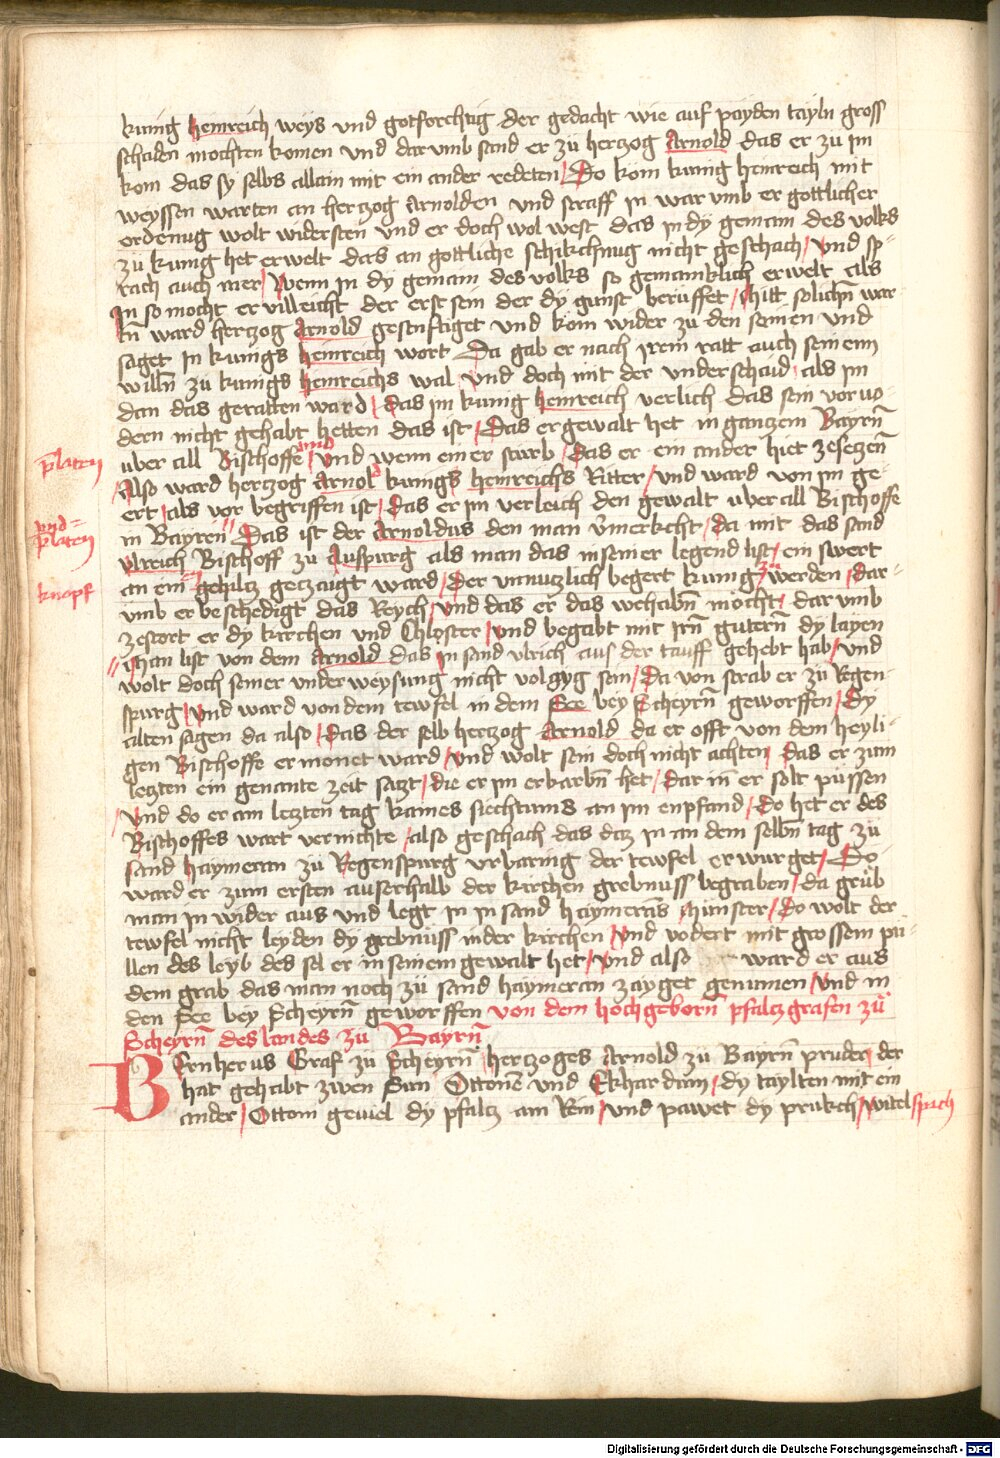 kunig heinreich weys vnd gotforchtig der gedacht wie auf payden tayln gross
schaden mochten komen vnd darvmb sand er zu hertzog Arnold das er zu im
kom das sy selbs allain mit ein ander redeten / Do kom kunig heinreich mit
weyssen warten an hertzog Arnolden vnd straff in war vmb er gottlicher
ordenug wolt widersten vnd er doch wol west das in dy gemain des volks
zu kunig het erwelt das an gottliche schikchnug nicht geschach / vnd sp-
rach auch mer / Wenn in dy gemain des volks so gemainklich erwelt als
in so mocht er villeicht der erst sein der dy gunst beruffet / Mitt solichn war
tn ward hertzog Arnold gesenftiget vnd kom wider zu den seinen vnd
saget in kunigs heinreich wort Da gab er nach irem ratt auch seinem
willn zu kunigs heinreichs wal vnd doch mit der vnderschaid als im
dan das geratten ward / das im kunig heinreich verlich das sein vor vo-
dern nicht gehabt hetten das ist / Das er gewalt het in gantzem Bayrn
platen
uber all Bischoffe vnd wenn einer sturb / Das er ein ander hiet zesetzen
Also ward hertzog Arnold kunigs heinreichs Ritter / vnd ward von im ge-
ert / als vor begriffen ist / Das er im verleich den gewalt uber all Bischoffe
vnd=
platen
in Bayren Das ist der Arnoldus den man vmerkcht / da mit das sand
vlreich Bischoff zu Auspurg als man das in seiner legend list / ein swert
knopf
an ein gehiltz getzaugt ward / Der vnnutzlich begert kunig zu werden / dar-
vmb er beschedigt das Reych / vnd das er das wehabn mocht / dar vmb
zestort er dy kirchen vnd Chloster / vnd begabt mit irn gutern dy layen
Man list von dem Arnold das in sand vlrich aus der tauff gehebt hab / vnd
wolt doch seiner vnderweysung nicht volgyg sein / Da von starb er zu Regen-
spurg / vnd ward von dem tewfel in dem See bey Scheyrn geworffen / Dy
alten sagen da also / Das der selb hertzog Arnold da er offt von dem heyli-
gen Bischoffe ermonet ward / vnd wolt sein doch nicht achten / das er zum
letzten ein genante zeit satzt / die er im erbarbn het / dar in er solt pussen
/ vnd do er am letzten tag kaines siechtums an im enpfand / Do het er des
Bischoffes wart vernichte / also geschach das daz in an dem selbn tag zu
sand haymeran zu Regenspurg vrbaring der tewfel erwurget / Do
ward er zum ersten auserhalb der kirchen grebnuss begraben / da grub
man in wider aus vnd legt in in sand haymerans Munster / Do wolt der
tewfel nicht leyden dy grebnuss in der kirchen / vnd vodert mit grossem pu-
llen des leyb des sel er in seinem gewalt het / vnd also ward er aus
dem grab das man noch zu sand haymeran zayget genumen / vnd in
den See bey Scheyrn geworffen von dem hochgeborn pfaltzgrafen zu
Scheyrn des landes zu Bayrn
Bernherus Graf zu Scheyrn hertzoges Arnold zu Bayrn pruder der
hat gehabt zwen Sun Ottonem vnd Ekhardum / dy taylten mit ein
ander / Ottoni geviel dy pfaltz am Rein / vnd pawet dy prukch / witelspach